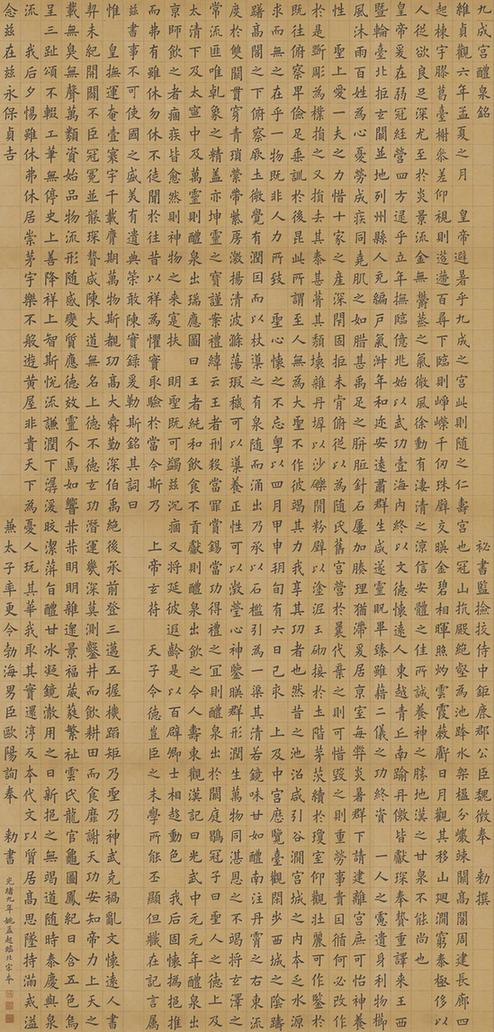 九成宮醴泉銘 秘書監撿挍侍中鉅鹿郡公臣魏徵奉 勑撰
維貞觀六年孟夏之月 皇帝避暑乎九成之宮此則隨之仁壽宮也冠山抗殿絕壑為池跨水架楹分巖竦闕高閣周建長廊四
起棟宇膠葛臺榭參差仰視則迢遰百尋下臨則崢嶸千仞珠璧交暎金碧相暉照灼雲霞蔽虧日月觀其移山迴澗窮泰極侈以
人從欲良足深尤至於炎景流金無鬱蒸之氣微風徐動有淒清之涼信安體之佳所誠養神之勝地漢之甘泉不能尚也
皇帝爰在弱冠經營四方逮乎立年撫臨億兆始以武功壹海內終以文德懷遠人東越青丘南踰丹徼皆獻琛奉贄重譯來王西
暨輪臺北拒玄闕並地列州縣人充編戶氣淑年和迩安遠肅群生咸遂靈貺畢臻雖藉二儀之功終資 一人之慮遺身利物櫛
風沐雨百姓為心憂勞成疾同堯肌之如腊甚禹足之胼胝針石屢加腠理猶滯爰居京室每弊炎暑群下請建離宮庶可怡神養
性 聖上愛一夫之力惜十家之產深閉固拒未肯俯從以為隨氏舊宮營於曩代棄之則可惜毀之則重勞事貴因循何必改作
於是斲彫為樸損之又損去其泰甚葺其頹壞雜丹墀以沙礫間粉壁以塗泥玉砌接於土階茅茨續於瓊室仰觀壯麗可作鑒於
既往俯察卑儉足垂訓於後昆此所謂至人無為大聖不作彼竭其力我享其功者也然昔之池沼咸引谷澗宮城之內本乏水源
求而無之在乎一物既非人力所致 聖心懷之不忘粵以四月甲申朔旬有六日己亥 上及中宮歷覽臺觀閑步西城之陰躊
躇高閣之下俯察厥土微覺有潤因而以杖導之有泉隨而涌出乃承以石檻引為一渠其清若鏡味甘如醴南注丹霄之右東流
度於雙闕貫穿青瑣縈帶紫房激揚清波滌蕩瑕穢可以導養正性可以澂瑩心神鑒暎群形潤生萬物同湛恩之不竭將玄澤之
常流匪唯乾象之精蓋亦坤靈之寶謹案禮緯云王者刑殺當罪賞錫當功得禮之宜則醴泉出於闕庭鶡冠子曰聖人之德上及
太清下及太寧中及萬靈則醴泉出瑞應圖曰王者純和飲食不貢獻則醴泉出飲之令人壽東觀漢記曰光武中元元年醴泉出
京師飲之者痼疾皆愈然則神物之來寔扶 明聖既可蠲茲沉痼又將延彼遐齡是以百辟卿士相趨動色 我后固懷撝挹推
而弗有雖休勿休不徒聞於往昔以祥為懼實取驗於當今斯乃 上帝玄符 天子令德豈臣之末學所能丕顯但職在記言屬
茲書事不可使國之盛美有遺典策敢陳實錄爰勒斯銘其詞曰
惟 皇撫運奄壹寰宇千載膺期萬物斯覩功高大舜勤深伯禹絕後承前登三邁五握機蹈矩乃聖乃神武克禍亂文懷遠人書
契未紀開闢不臣冠冕並襲琛贄咸陳大道無名上德不德玄功潛運幾深莫測鑿井而飲耕田而食靡謝天功安知帝力上天之
載無臭無聲萬類資始品物流形隨感變質應德效靈介焉如響赫赫明明雜遝景福葳蕤繁祉雲氏龍官龜圖鳳紀日含五色烏
呈三趾頌不輟工筆無停史上善降祥上智斯悅流謙潤下潺湲皎潔萍旨醴甘冰凝鏡澈用之日新挹之無竭道隨時泰慶與泉
流 我后夕惕雖休弗休居崇茅宇樂不般遊黃屋非貴天下為憂人玩其華我取其實還淳反本代文以質居高思墜持滿戒溢
念茲在茲永保貞吉 兼太子率更令勃海男臣歐陽詢奉 勑書 光緒九年姚孟起臨北宋本